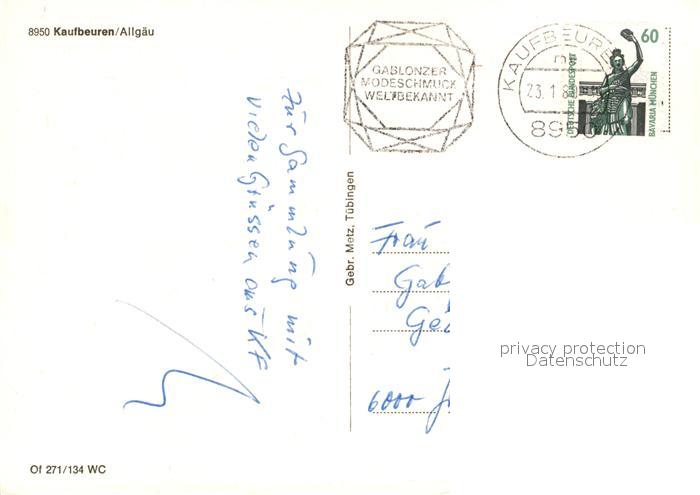 8950 Kaufbeuren/Allgäu
GABLONZER
MODESCHMUCK
WELTBEKANNT
KAUFBEURE
23.1.8
8950
60
DEUTSCHE BUNDESPOST
BAVARIA MÜNCHEN
Für Sammlung mit
vielen Grüssen aus KF
Gebr. Metz, Tübingen
Frau
Gab
6000
privacy protection
Datenschutz
Of 271/134 WC